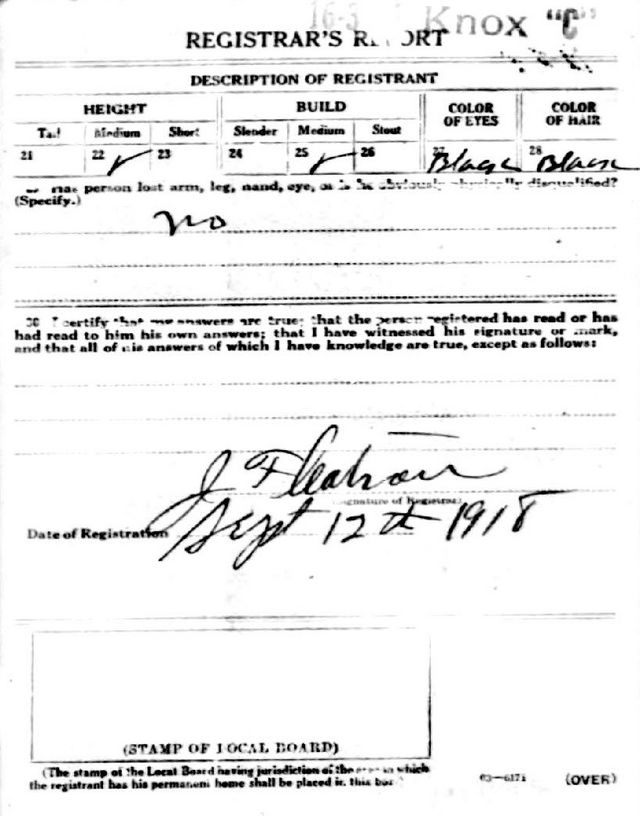 16-3 Knox "C"
REGISTRAR'S REPORT
DESCRIPTION OF REGISTRANT
HEIGHT BUILD COLOR OF EYES COLOR OF HAIR
Tall Medium Short Slender Medium Stout
21 22 ✓ 23 24 25 ✓ 26 27 Black 28 Black
person lost arm, leg, hand, eye, or is he obviously physically disqualified?
(Specify.)
no
30 I certify that my answers are true; that the person registered has read or has
had read to him his own answers; that I have witnessed his signature or mark,
and that all of his answers of which I have knowledge are true, except as follows:
J
Signature of Registrar
Date of Registration Sept 12th 1918
(STAMP OF LOCAL BOARD)
(The stamp of the Local Board having jurisdiction of the area in which
the registrant has his permanent home shall be placed in this box.)
03—6171 (OVER)